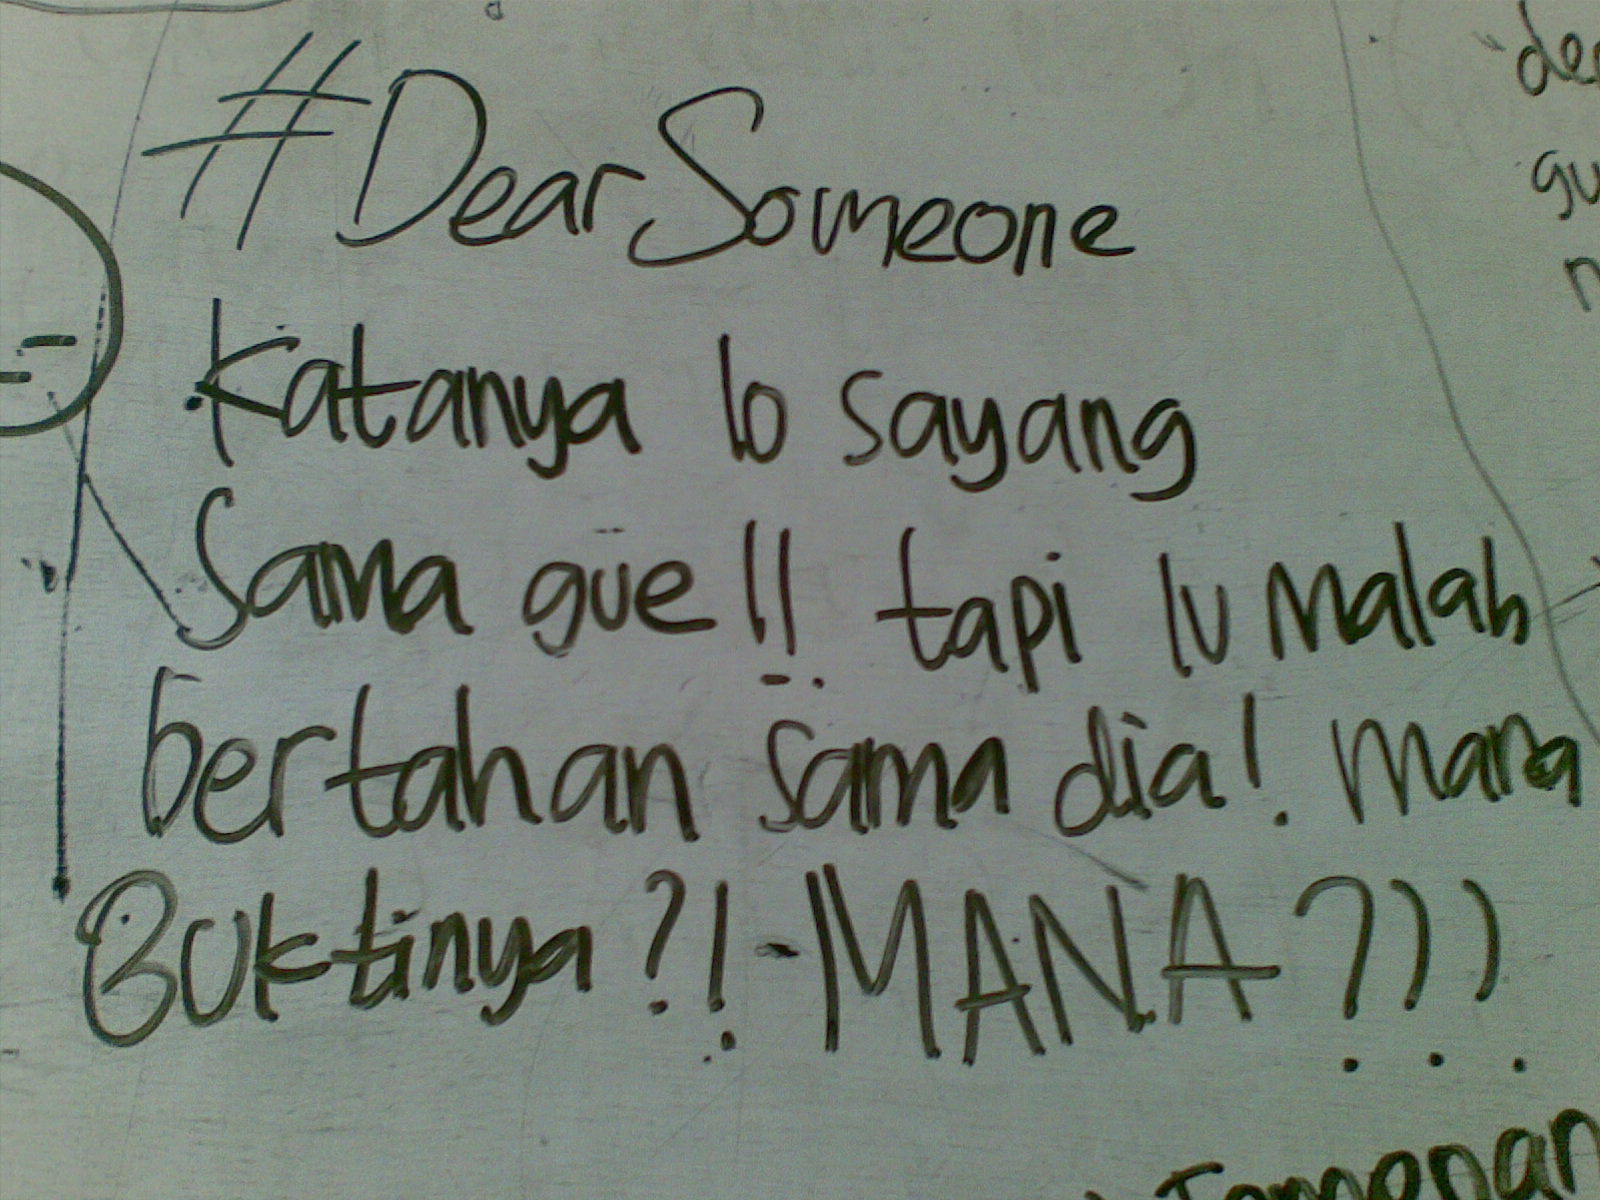 #DearSomeone
Katanya lo sayang
Sama gue!! tapi lu malah
bertahan sama dia! Mana
Buktinya?! - MANA???